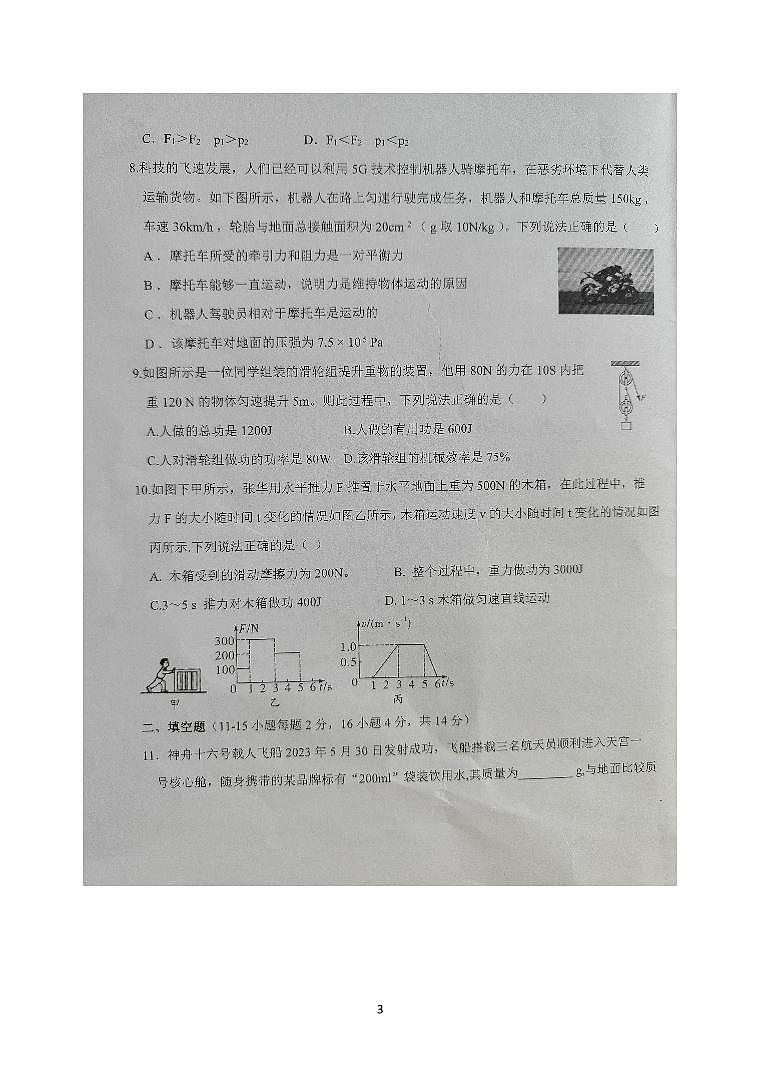 C．F₁＞F₂ p₁＞p₂ D．F₁＜F₂ p₁＜p₂
8.科技的飞速发展，人们已经可以利用 5G 技术控制机器人骑摩托车，在恶劣环境下代替人类
运输货物。如下图所示，机器人在路上匀速行驶完成任务，机器人和摩托车总质量 150kg，
车速 36km/h，轮胎与地面总接触面积为 20cm²（g 取 10N/kg）。下列说法正确的是（ ）
A．摩托车所受的牵引力和阻力是一对平衡力
B．摩托车能够一直运动，说明力是维持物体运动的原因
C．机器人驾驶员相对于摩托车是运动的
D．该摩托车对地面的压强为 7.5×10⁵ Pa
9.如图所示是一位同学组装的滑轮组提升重物的装置，他用 80N 的力在 10S 内把
重 120 N 的物体匀速提升 5m。则此过程中，下列说法正确的是（ ）
F
A.人做的总功是 1200J B.人做的有用功是 600J
C.人对滑轮组做功的功率是 80W D.该滑轮组的机械效率是 75%
10.如图下甲所示，张华用水平推力 F 推置于水平地面上重为 500N 的木箱，在此过程中，推
力 F 的大小随时间 t 变化的情况如图乙所示，木箱运动速度 v 的大小随时间 t 变化的情况如图
丙所示,下列说法正确的是（ ）
A. 木箱受到的滑动摩擦力为 200N。 B. 整个过程中，重力做功为 3000J
C.3～5 s 推力对木箱做功 400J D. 1～3 s 木箱做匀速直线运动
甲
F/N
300
200
100
0 1 2 3 4 5 6 t/s
乙
v/(m·s⁻¹)
1.0
0.5
0 1 2 3 4 5 6 t/s
丙
二、填空题（11-15 小题每题 2 分，16 小题 4 分，共 14 分）
11．神舟十六号载人飞船 2023 年 5 月 30 日发射成功，飞船搭载三名航天员顺利进入天宫一
号核心舱，随身携带的某品牌标有“200ml”袋装饮用水,其质量为________ g,与地面比较质
3